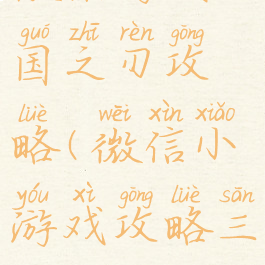 guó zhī rèn gōng
国之刃攻
lüè wēi xìn xiǎo
略(微信小
yóu xì gōng lüè sān
游戏攻略三